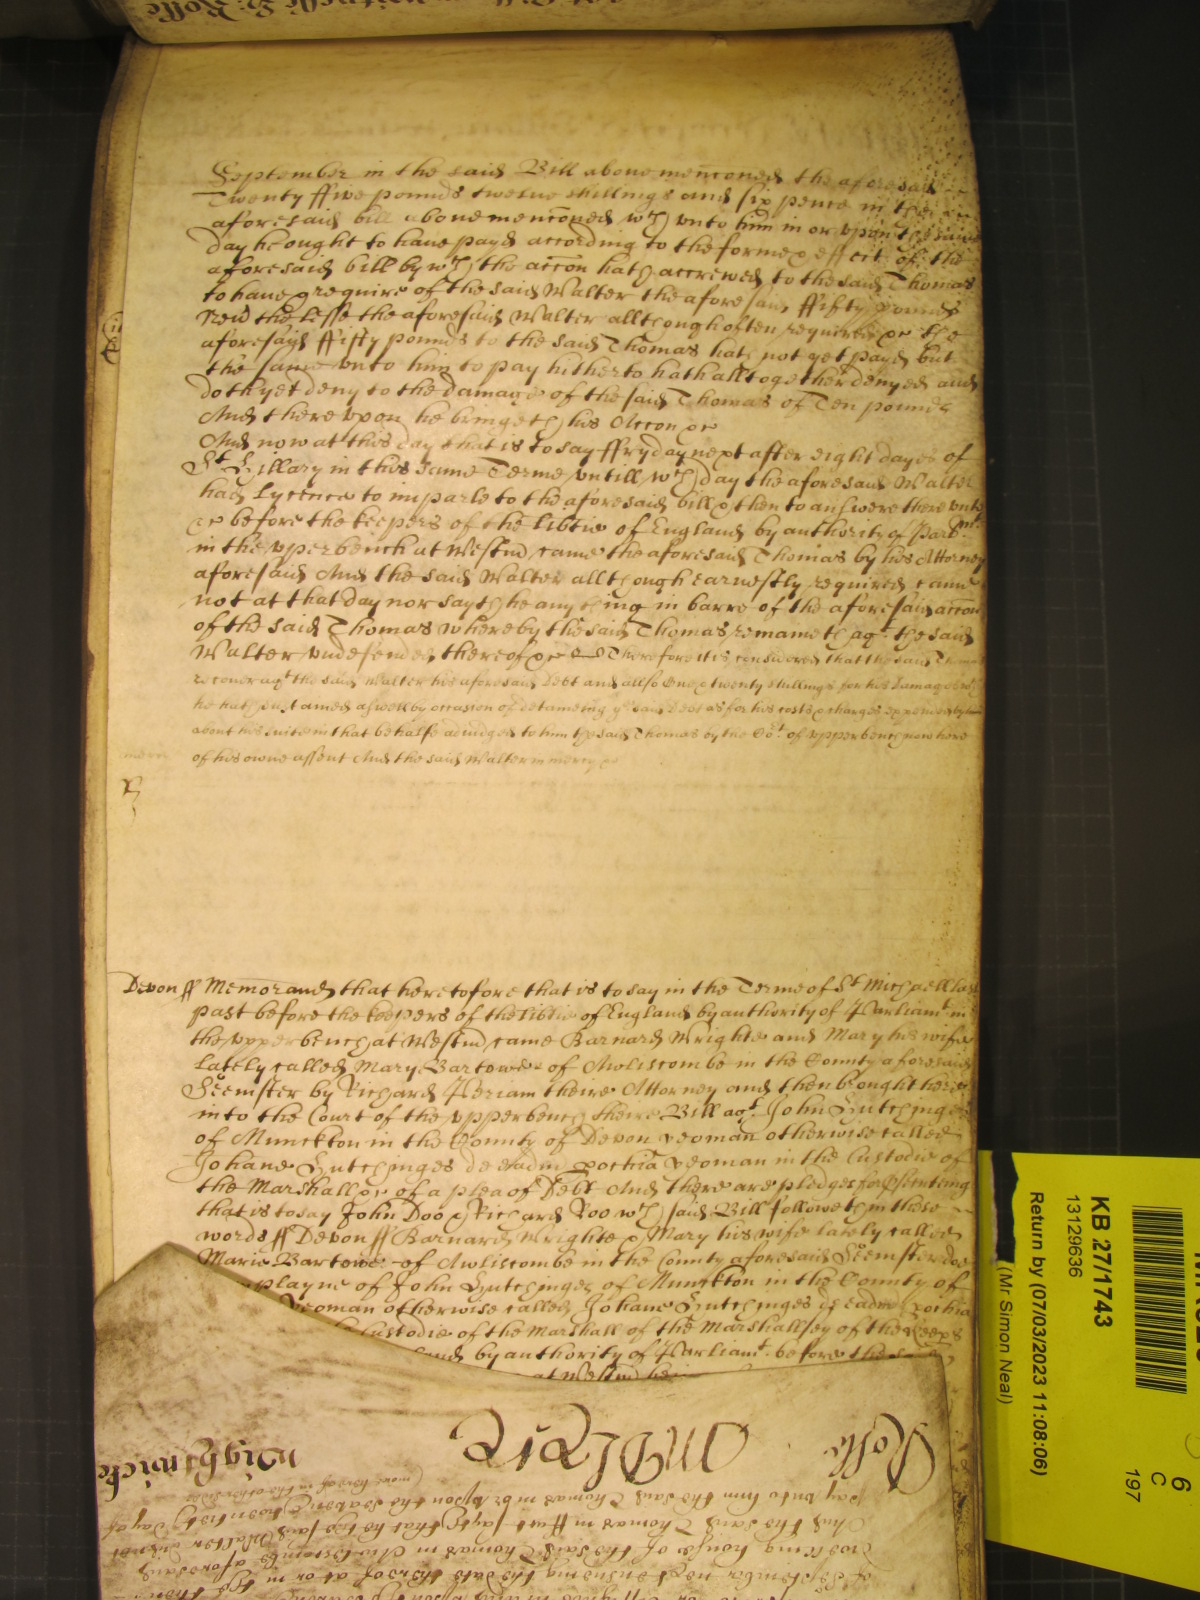 September in the said Bill above menconed the aforesaid
Twenty ffive pounds twelve shillings and six pence in the
aforesaid bill above menconed wch unto him in or upon the same
day he ought to have payd according to the forme & effect of the
aforesaid bill by wch the accon hath accrewed to the said Thomas
to have & require of the said Walter the aforesaid ffifty pounds
nevertheless the aforesaid Walter allthough often required &c the
aforesaid ffifty pounds to the said Thomas hath not yet payd but
the same unto him to pay hitherto hath alltogether denyed and
doth yet deny to the damage of the said Thomas of Ten pounds
And thereupon he bringeth his Accon &c
And now at this day that is to say ffryday next after eight dayes of
St Hillary in this same Terme untill wch day the aforesaid Walter
had Lycence to imparle to the aforesaid bill & then to answere thereunto
&c before the keepers of the libtie of England by authority of Parlmt
in the upper bench at Westm came the aforesaid Thomas by his Attorney
aforesaid And the said Walter allthough earnestly required came
not at that day nor sayth he any thing in barre of the aforesaid accon
of the said Thomas whereby the said Thomas remaineth agt the said
Walter undefended thereof &c Therefore it is considered that the said Thomas
recover agt the said Walter his aforesaid Debt and allso One & twenty shillings for his damages
he hath sustained aswell by occasion of detaineing ye said Debt as for his costs & charges expended by him
about his suite in that behalfe adiudged to him the said Thomas by the Cort of upper bench now here
of his owne assent And the said Walter in mercy &c
Devon ss Memorand that heretofore that is to say in the Terme of St Michaell last
past before the keepers of the libtie of England by authority of Parliamt in
the upper bench at Westm came Barnard Wrighte and Mary his wife
lately called Mary Bartowe of Awliscombe in the County aforesaid
Seemster by Richard Periam theire Attorney and then brought here
into the Court of the upper bench theire Bill agt John Hutchinges
of Munckton in the County of Devon yeoman otherwise called
Johane Hutchinges de eadm pochia yeoman in the Custodie of
the Marshall &c of a plea of Debt And there are pledges for psecuting
that is to say John Doo & Richard Roo wch said Bill followeth in these
words ss Devon ss Barnard Wrighte & Mary his wife lately called
Marie Bartowe of Awliscombe in the County aforesaid Seemster doe
playne of John Hutchinges of Munckton in the County of
yeoman otherwise called Johane Hutchinges de eadm pochia
Custodie of the Marshall of the Marshallsey of the keeps
by authority of Parliamt before the
at Westm
Rolle
Wightwicke
pay unto him the said Thomas
And the said Thomas in ffact sayth that he the said Walter did not
dwelling house of the said Thomas in
of September next ensuing the date thereof at or in the then
KB 27/1743
13129636
Return by (07/03/2023 11:08:06)
(Mr Simon Neal)
6
C
197